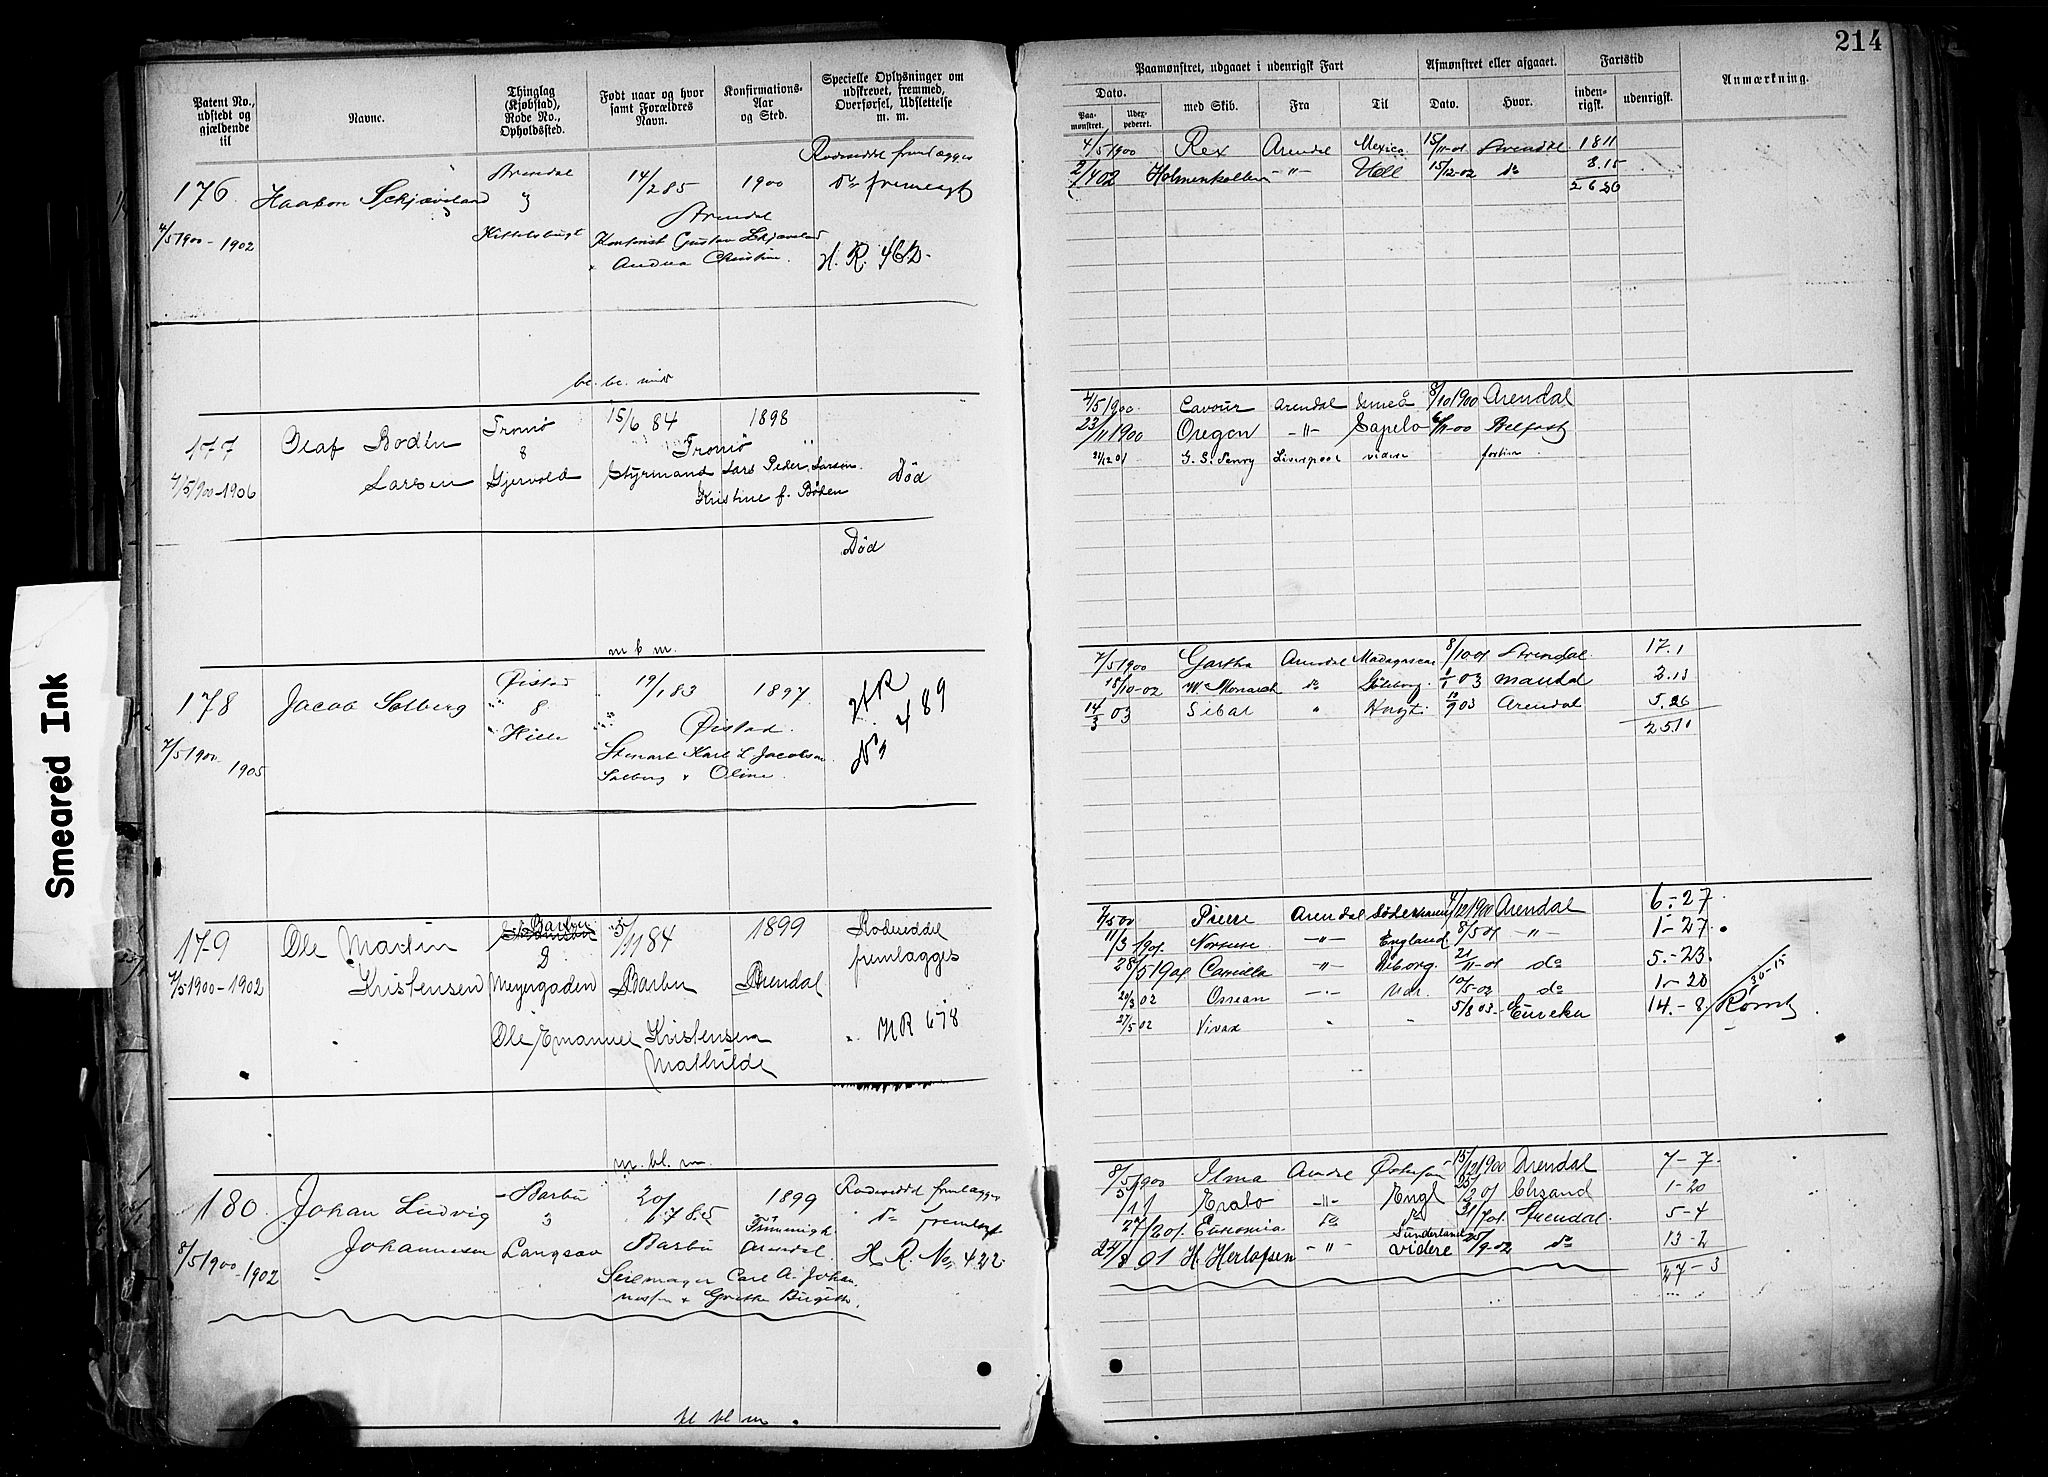 214
Patent No., udstedt og gjældende til
Navne.
Thinglag (Kjøbstad), Rode No., Opholdssted.
Født naar og hvor samt Forældres Navn.
Konfirmations-Aar og Sted.
Specielle Oplysninger om udskrevet, fremmed, Overførsel, Udslettelse m. m.
Paamønstret, udgaaet i udenrigsk Fart
Afmønstret eller afgaaet.
Fartstid
Anmærkning.
Dato.
Paamønstret.
Udexpederet.
med Skib.
Fra
Til
Dato.
Hvor.
indenrigsk.
udenrigsk.
Smeared Ink
176
4/5 1900 - 1902
Haakon Schjæveland
Arendal
3
Kittelsbugt
14/2 85
Arendal
Gustav Schjæveland
Andrea Christine
1900
Rodeseddel fremlægges
do fremlagt
H. R. 462.
4/5 1900 Rex Arendal Mexico 15/11-01 Arendal 1811
2/4 02 Holmenkollen -"- 15/12-02 do 8.15
2626
177
4/5 1900-1906
Olaf Bodin
Larsen
Tromø
8
Gjervold
15/6 84
Tromø
Styrmand Lars Peder Larsen
Kristine f. Bøden
1898
Død
Død
4/5 1900 Cavour Arendal Umeå 8/10 1900 Arendal
23/11 1900 Oregon -"- Sapelo 6/11-00 Belfast
21/12 01 G. S. Penry Liverpool videre
178
7/5 1900 1905
Jacob Solberg
Øistad
8
Hille
19/1 83
Øistad
Stenarb. Karl L Jacobsen
Solberg & Oline.
1897
HR
No 489
m b m.
7/5 1900 Gartha Arendal Madagascar 8/10 01 Arendal 17.1
18/10-02 W. Monarch do Göteborg 03 Mandal 2.13
14/3 03 Sibal " 903 Arendal 5.26
25.11
179
7/5 1900-1902
Ole Martin
Kristensen
Barbu
2
Meyergaden
5/11 84
Barbu
Ole Emanuel Kristensen
Mathilde
1899
Arendal
Rodeseddel
fremlægges
HR 678
7/5 00 Pierre Arendal Söderhamn 4/12 1900 Arendal 6-27
11/3 1901. -"- England 8/5 01 -"- 1-27
28/5 1901 Camilla -"- Viborg. 21/11-01 do 5.-23.
20/3 02 Ossian -"- 10/5-02 do 1-20
27/5 02 Vivax " " 5/8 03. Eureka 14.-8.
30-15
m. bl. m.
180
8/5 1900 -1902
Johan Ludvig
Johannesen
Barbu
3
Langsæv
20/7 85
Barbu
Seilmager Carl A. Johannessen & Grethe Birgitte.
1899
Arendal.
Rodeseddel fremlægges
do fremlagt
H. R. No 422.
8/5 1900 Ilma Arndl 15/12 1900 Arendal 7-7.
Erato -"- Engl Chsand 1-20
27/6 01. Eunomia do do 31/7 01. Arendal. 5-4
24/8 01 H. Herlofsen -"- Sunderland videre 25/9-02 do 13-2
27-3
bl bl m.